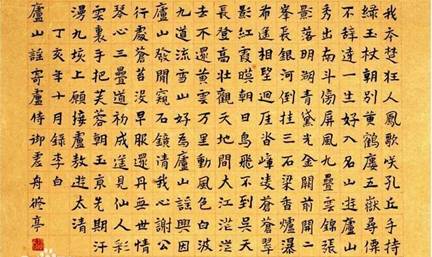 我本楚狂人鳳歌咲孔丘手持
綠玉杖朝別黃鶴廔五嶽尋僊
不辞遠一生好入名山遊廬山
秀出南斗傍屏風九疊雲錦張
影落明湖青黛光金闕前開二
峯長銀河倒挂三石梁香爐瀑
布遙相望迴厓沓嶂凌蒼蒼翠
影紅霞暎朝日鳥飛不到吳天
長登高壯觀天地間大江茫茫
去不還黃雲万里動風色白波
九道流雪山好為廬山謠興因
廬山發閑窺石鏡清我心謝公
行處蒼苔沒早服還丹無世情
琴心三疊道初成遙見仙人彩
雲裏手把芙蓉朝玉京先期汗
漫九垓上願接盧敖遊太清
丁亥年十月録李白
廬山謠寄盧侍御虛舟 修亭